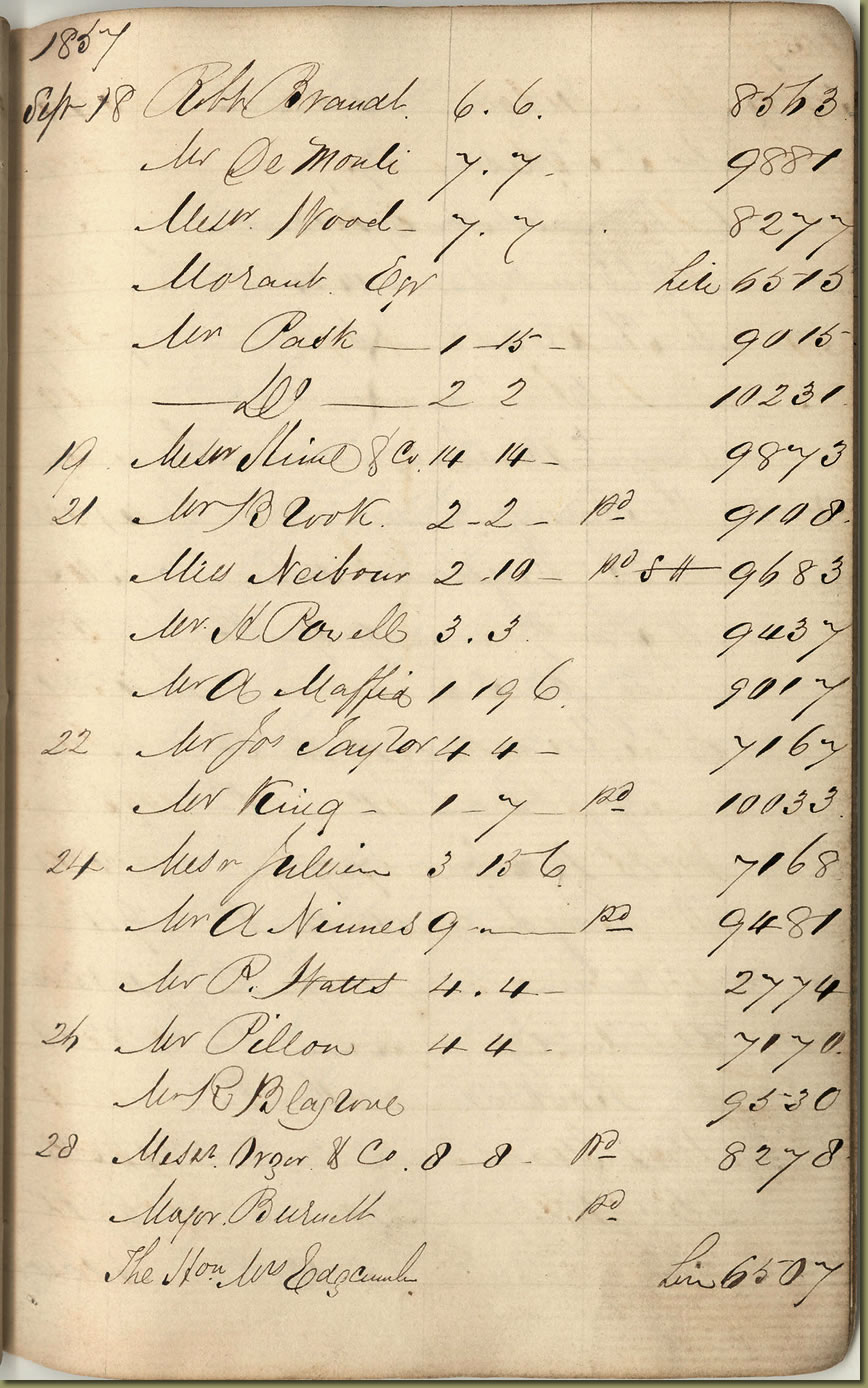 1857
Sept 18 Robt Brandt. 6. 6. 8563
Mr De Monti 7. 7. 9881
Messr. Wood - 7. 7 8277
Morant. Eqr 6515
Mr Pask — 1 - 15 - 9015
— Do — 2 2 10231
19 Messr & Co. 14 14 - 9873
21 Mr Brook. 2 - 2 - pd 9108.
Miss Neibour 2 .10 - pd 9683
Mr. H Powell 3. 3. 9437
Mr A Maffia 1 19 6. 9017
22 Mr Jos Taylor 4 4 - 7167
Mr King - 1 - 7 - pd 10033.
24 Messr Jullien 3 15 6. 7168
Mr A Ninnes 9 — pd 9481
Mr P. Watts 4. 4 - 2774
26 Mr Pillon 4 4 - 7170.
Mr R Blagrove 9530
28 Messr. & Co. 8 - 8 - pd 8278
Major. Burnett pd
The Hon Mrs Edgcumbe 6507